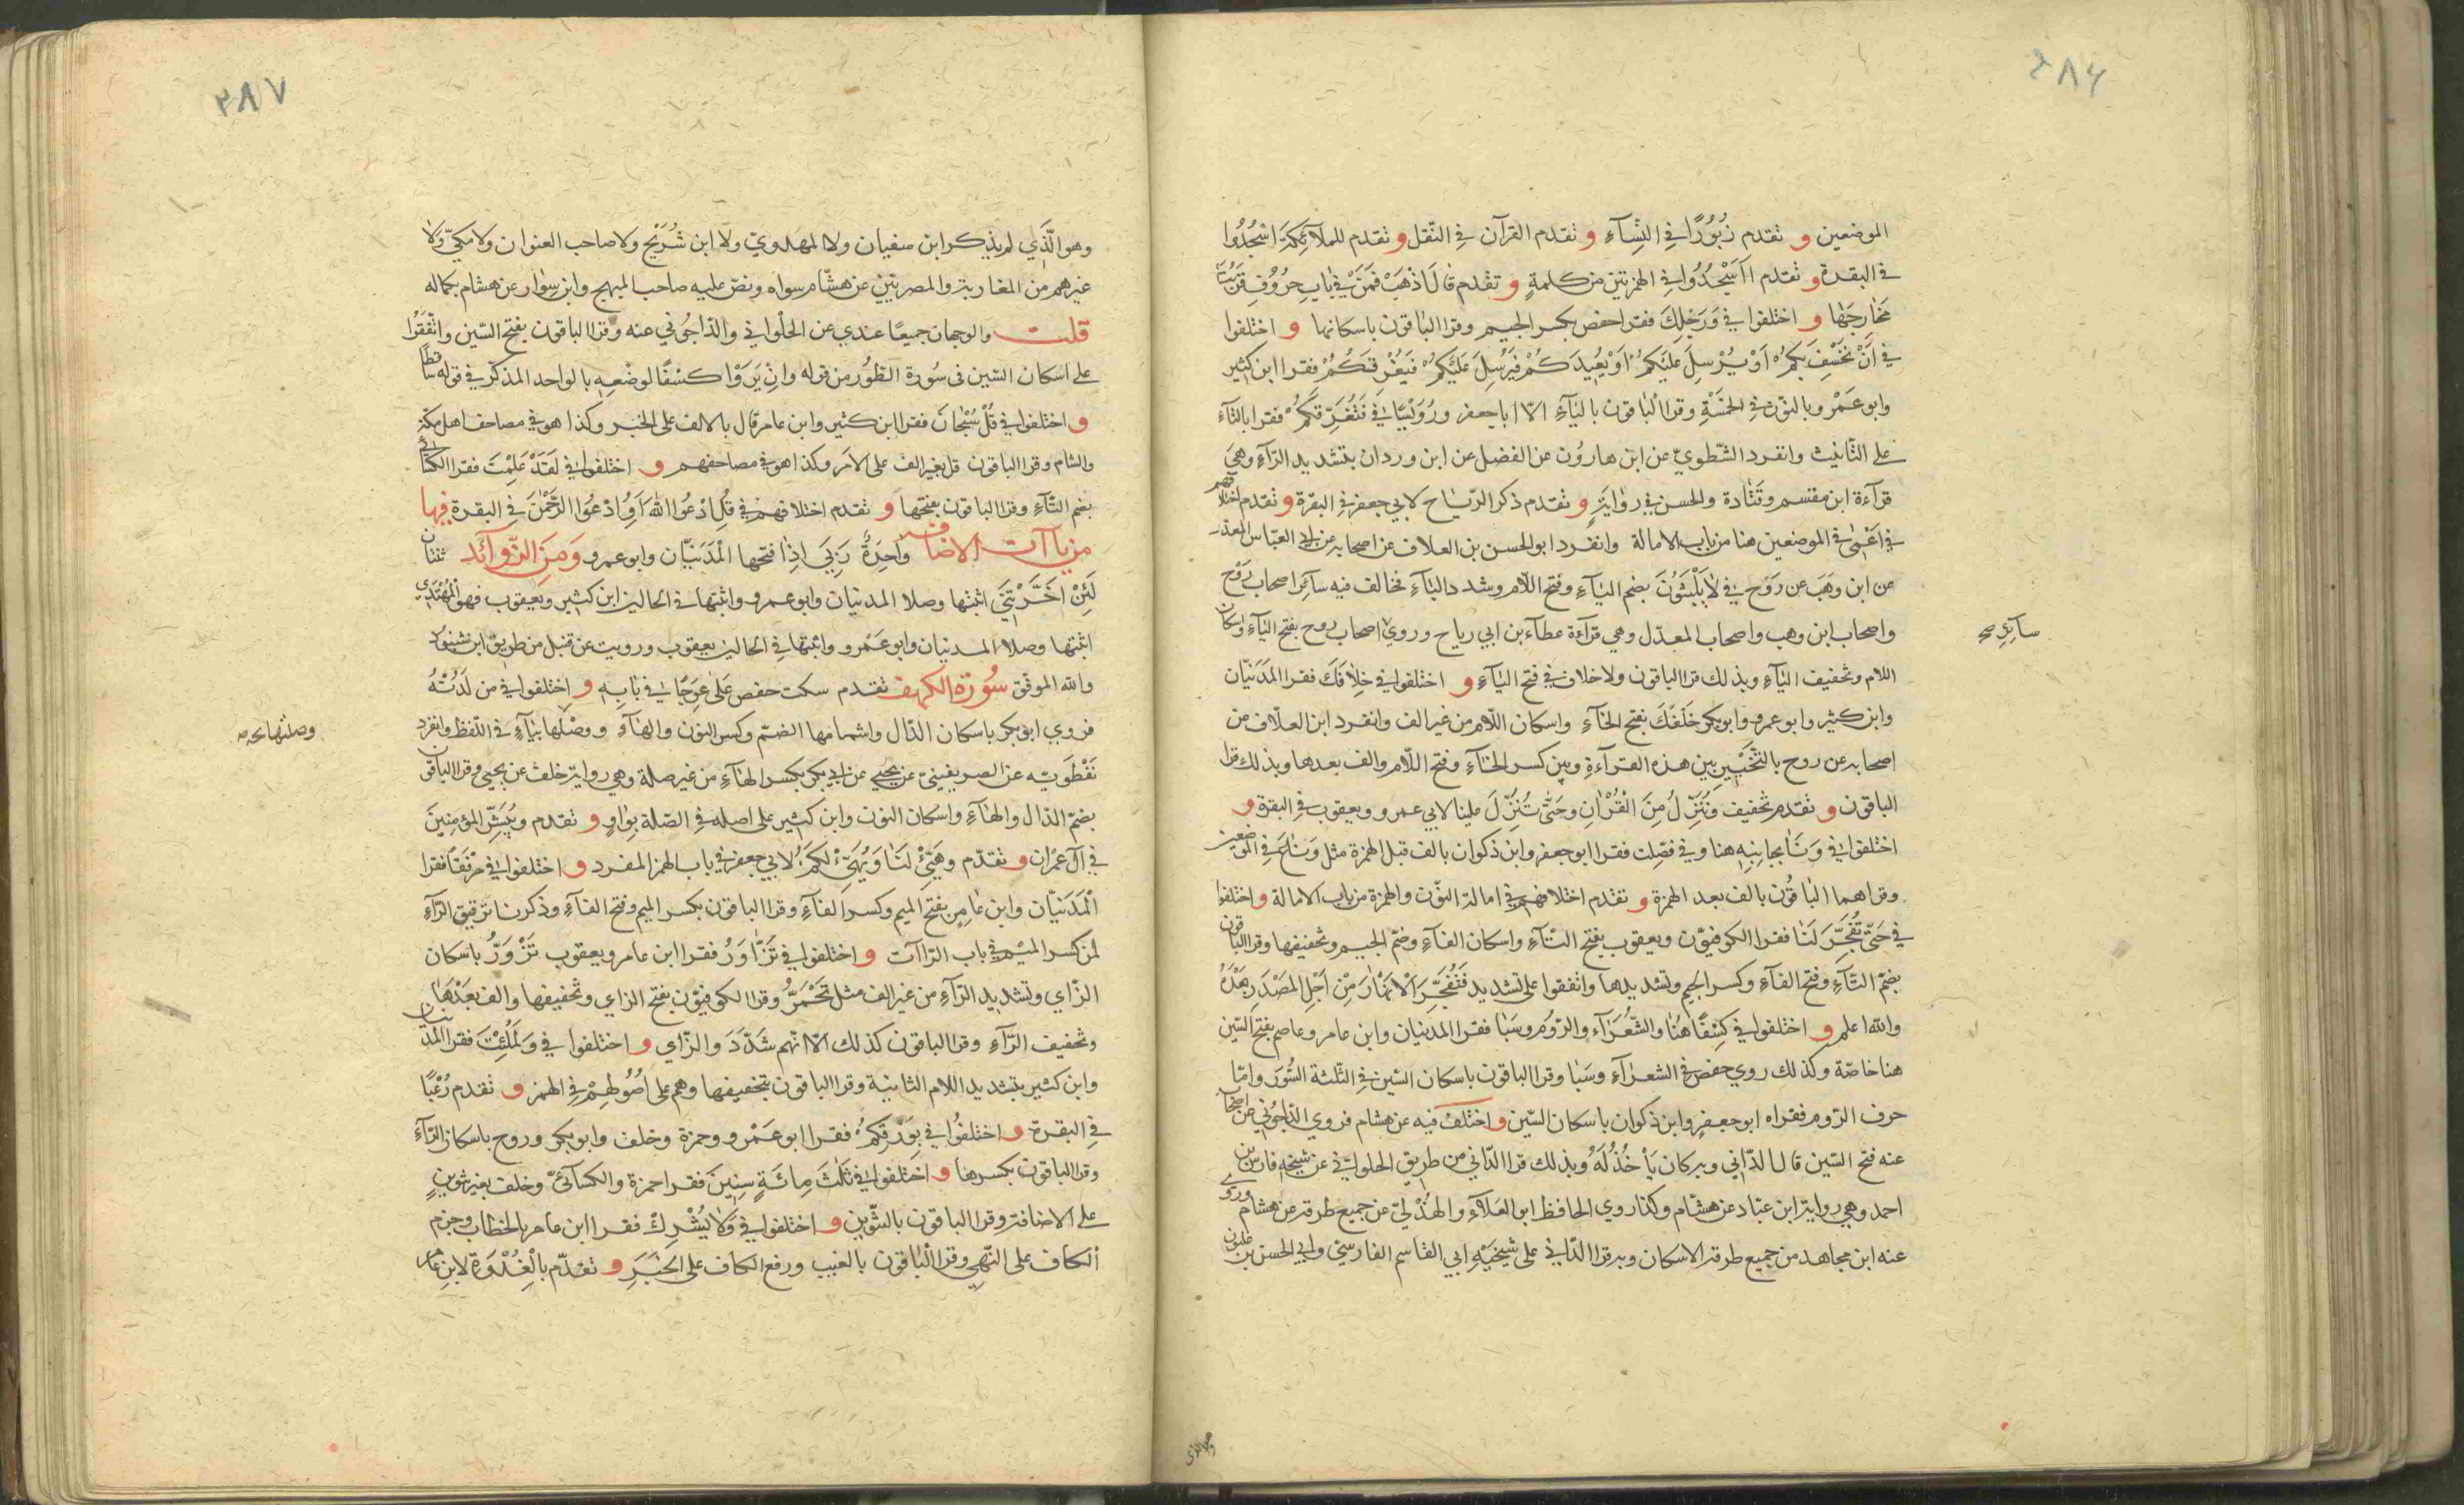 ٢٨٦
الموضعين و تقدم زُبُورًا في النِّسآءِ و تقدم القرآن في النّقل و تقدم للملآئكة اسْجُدُوا
في البقرة و تقدم ءاَسْجُدُ في الهمزتين من كلمةٍ و تقدم قالَ اذْهَبْ فَمَنْ في بابِ حرُوُفٍ قَرُبَتْ
مَخٰارِجُهٰا و اختلفوا في وَرَجِلِكَ فقرا حفص بكسر الجيم وقرا البٰاقون باسكانها و اختلفوا
في اَنْ يَخْسِفَ بِكمُ اَوْ يُرْسِلَ عَليَكمُ اَوْ يُعيدَكُمْ فَيُرْسِلَ عَليَكمُ فَيُغْرِقَكُمْ فقرا ابن كثير
وابو عَمْرو بالنوّن في الخمَسْةِ وقرا البٰاقون باليٰآءِ الاّ ابا جعفر ورُوَيْسًا في فَتُغْرِقَكمُ فقرا بالتآءِ
على التأنيث وانفرد الشّطويّ عن ابن هاروُن عن الفضل عن ابن وردان بتشديد الرّآءِ وهيَ
قرآءة ابن مقسم وقَتٰادة والحسن في روٰايَةٍ و تقدم ذكر الرّيٰاح لابي جعفر في البقرة و تقدم اختلافهم
في اَعْمٰى في الموضعين هنا من باب الامالة وانفرد ابو الحسن بن العلاف عن اصحابه عن ابي العبّاس المعدّل
عن ابن وَهبَ عن رَوْح في لاٰ يَلْبَثوُنَ بضم اليٰآءِ وفتح اللّام وشدد البٰآءِ فخالف فيه سآئر اصحاب رَوْح
واصحاب ابن وهب واصحاب المعدّل وهي قرآءة عطآء بن ابي رياح وروي اصحاب روح بفتح اليٰآءِ واسكان
سآئر صح
اللام وتخفيف البٰآءِ وبذلك قرا الباقون ولا خلاف في فتح البٰآءِ و اختلفوا في خِلاٰفَكَ فقرا المَدَنيّان
وابن كثير وابو عمرو وابو بكر خَلْفَكَ بفتح الخٰآءِ واسكان اللّام من غير الف وانفرد ابن العلّاف من
اصحابه عن روح بالتّخْيير بين هذه القرٰآءةِ وبين كسر الخٰآءِ وفتح اللّام والف بعدها وبذلك قرا
الباقون و تقدم تخفيف ونُنَزّلُ مِنَ القُرْاٰنِ وحَتّى تُنَزّلَ علينا لابي عمرو ويعقوب في البقرة و
اختلفوا في وَنَاٰ بجانِبِهِ هنا وفي فصّلت فقرا ابو جعفر وابن ذكوان بالف قبل الهمزة مثل وَنٰاءَ في الموضعين
وقراهما البٰاقُون بالف بعد الهمزة و تقدم اختلافهم في امالة النّون والهمزة من باب الامالة و اختلفوا
في حَتّى تُفَجِّرَ لَنٰا فقرا الكوفيّون ويعقوب بفتح التّآءِ واسكان الفآءِ وضمّ الجيم وتخفيفها وقرا الباقون
بضمّ التّآءِ وفتح الفآءِ وكسر الجيم وتشديدها واتّفقوا على تشديد فَتُفَجِّرَ الْاَنهْٰارَ مِنْ اَجْلِ المَصْدَرِ بَعْدَهُ
والله اعلم و اختلفوا في كِسَفًا هُنٰا والشُّعُرَآءِ والرّوُم وسَبَا فقرا المدنيان وابن عامر وعاصم بفتح السّين
هنا خاصّة وكذلك روي حفص في الشعرٰآءِ وسَبَا وقرا الباقون باسكان السّين في الثّلثة السُّوَر وامّا
حرف الرّوم فقراه ابو جعفرٍ وابن ذكوان باسكان السّين و اختلفَ فيه عن هشام فروي الدّاجُونيّ عن اصحابه
عنه فتح السّين قال الدّاني وبه كان يَأخُذُ لَهُ وبذلك قرا الدّاني من طريق الحلوانيّ عن شيخه فارس بن
احمد وهي رواية ابن عبّاد عن هشام وكذا روي الحافظ ابو العَلآءِ والهُذَلي عن جميع طرقه عن هشام وروي
عنه ابن مجاهد من جميع طرقه الاسكان وبه قرا الدّاني على شيخَيْهِ ابي القٰاسم الفارسيّ وابي الحسن بن غلبون
وهو الذي
٢٨٧
وهو الّذَي لم يذكر ابن سفيان ولا المهدويّ ولا ابن شُرَيْح ولا صاحب العنوان ولا مكيّ ولا
غيرهم من المغاربة والمصريّين عن هشّام سواه ونصّ عليه صاحب المبهج وابن سِوٰار عن هشام بكماله
قلت والوجهان جميعًا عندي عن الحلوانيّ والدّاجُوني عنه وقرا الباقون بفتح السّين واتّفَقُوا
على اسكان السّين في سُورة الطّور من قوله وانْ يَرَوْا كِسْفًا لوضْعِهِ بالواحد المذكّر في قوله ساقطًا
و اختلفوا في قُلْ سُبْحٰانَ فقرا ابن كثير وابن عامر قال بالالف على الخبر وكذا هو في مصاحف اهل مكّة
والشام وقرا الباقون قل بغير الف على الامر وكذا هو في مصاحفهم و اختلفوا في لَقَدْ عَلِمْتَ فقرا الكسائي
بضم التّآءِ وقرا الباقون بفتحها و تقدم اختلافهم في قُلِ ادْعُوا اللهَ اَوِ ادْعُوا الرَّحْمٰنَ في البقرة فيها
من ياآت الاضافة واحِدَةٌ رَبّي اِذًا فتحها الْمَدَنيّان وابو عمرو وَمِنَ الزّوآئد ثنتان
لَئِنْ اَخَّرْتَنِ اثبتها وصلا المدنيان وابو عمرو واثبتها في الحالين ابن كثير ويعقوب فهو الْمُهْتَدِي
اثبتها وصلا المدنيان وابو عَمْرو واثبتها في الحالين يعقوب ورويت عن قنبل من طريق ابن شنبوذ
والله الموفّق سُورَة الكهف تقدم سكت حفص عَلىٰ عِوَجًا في بٰابِهِ و اختلفوا في من لَدُنْهُ
فروي ابو بكر باسكان الدّال واشمامها الضّمّ وكسر النون والهٰآءِ ووصْلها بيٰآءٍ في اللّفظ وانفرد
وصلتها نخه
نَفْطَوَيْه عن الصريفينيّ عن يحيي عن ابي بكر بكسر الهٰآءِ من غير صلة وهي رواية خلف عن يحيى وقرا الباقون
بضمّ الدّال والهٰآءِ واسكان النون وابن كثير على اصله في الصّلة بوٰاوٍ و تقدم ويُبَشّر المؤمِنِينَ
في اٰل عمْران و تقدّم وهَيّئْ لَنٰا وَيُهَيّئْ لكمَُ لابي جعفر في باب الهمز المفرد و اختلفوا في مِرْفَقًا فقرا
الْمَدَنيّان وابن عٰامِرٍ بفتح الميم وكسر الفٰآءِ وقرا الباقون بكسر الميم وفتح الفٰآءِ وذكرنا ترقيق الرّآءِ
لمن كسر الميْم في باب الرّاآت و اختلفوا في تَزّٰاوَرُ فقرا ابن عامر ويعقوب تَزْوَرُّ باسكان
الزّاي وتشديد الرّآءِ من غير الف مثل تَحْمَرُّ وقرا الكوفيّون بفتح الزاي وتخفيفها والف بَعْدَهٰا
وتخفيف الرّآءِ وقرا الباقون كذلك الاّ انّهم شَدّدَ والزّاي و اختلفوا في وَلَمُلِئْتَ فقرا المدنيان
وابن كثير بتشديد اللام الثانية وقرا الباقون بتخفيفها وهم على اُصُولهِمْ في الهمز و تقدم رُعْبًا
في البقرة و اختلفُوا في بِوَرِقكِمُ فقرا ابو عَمْرو وحمزة وخلف وابو بكر وروح باسكان الرّآءِ
وقرا الباقون بكسرها و اختلفوا في ثَلٰثَ مِائَةٍ سِنينَ فقرا حمزة والكسآئيّ وخلف بغير تنوين
على الاضافة وقرا الباقون بالتّنوين و اختلفوا في وَلاٰ يُشْرِكْ فقرا ابن عامر بالخطاب وجزم
الكاف على النّهي وقرا البٰاقون بالغيب ورفع الكاف على الخَبَرِ و تقدّم بالْغُدْوَة لابن عامر